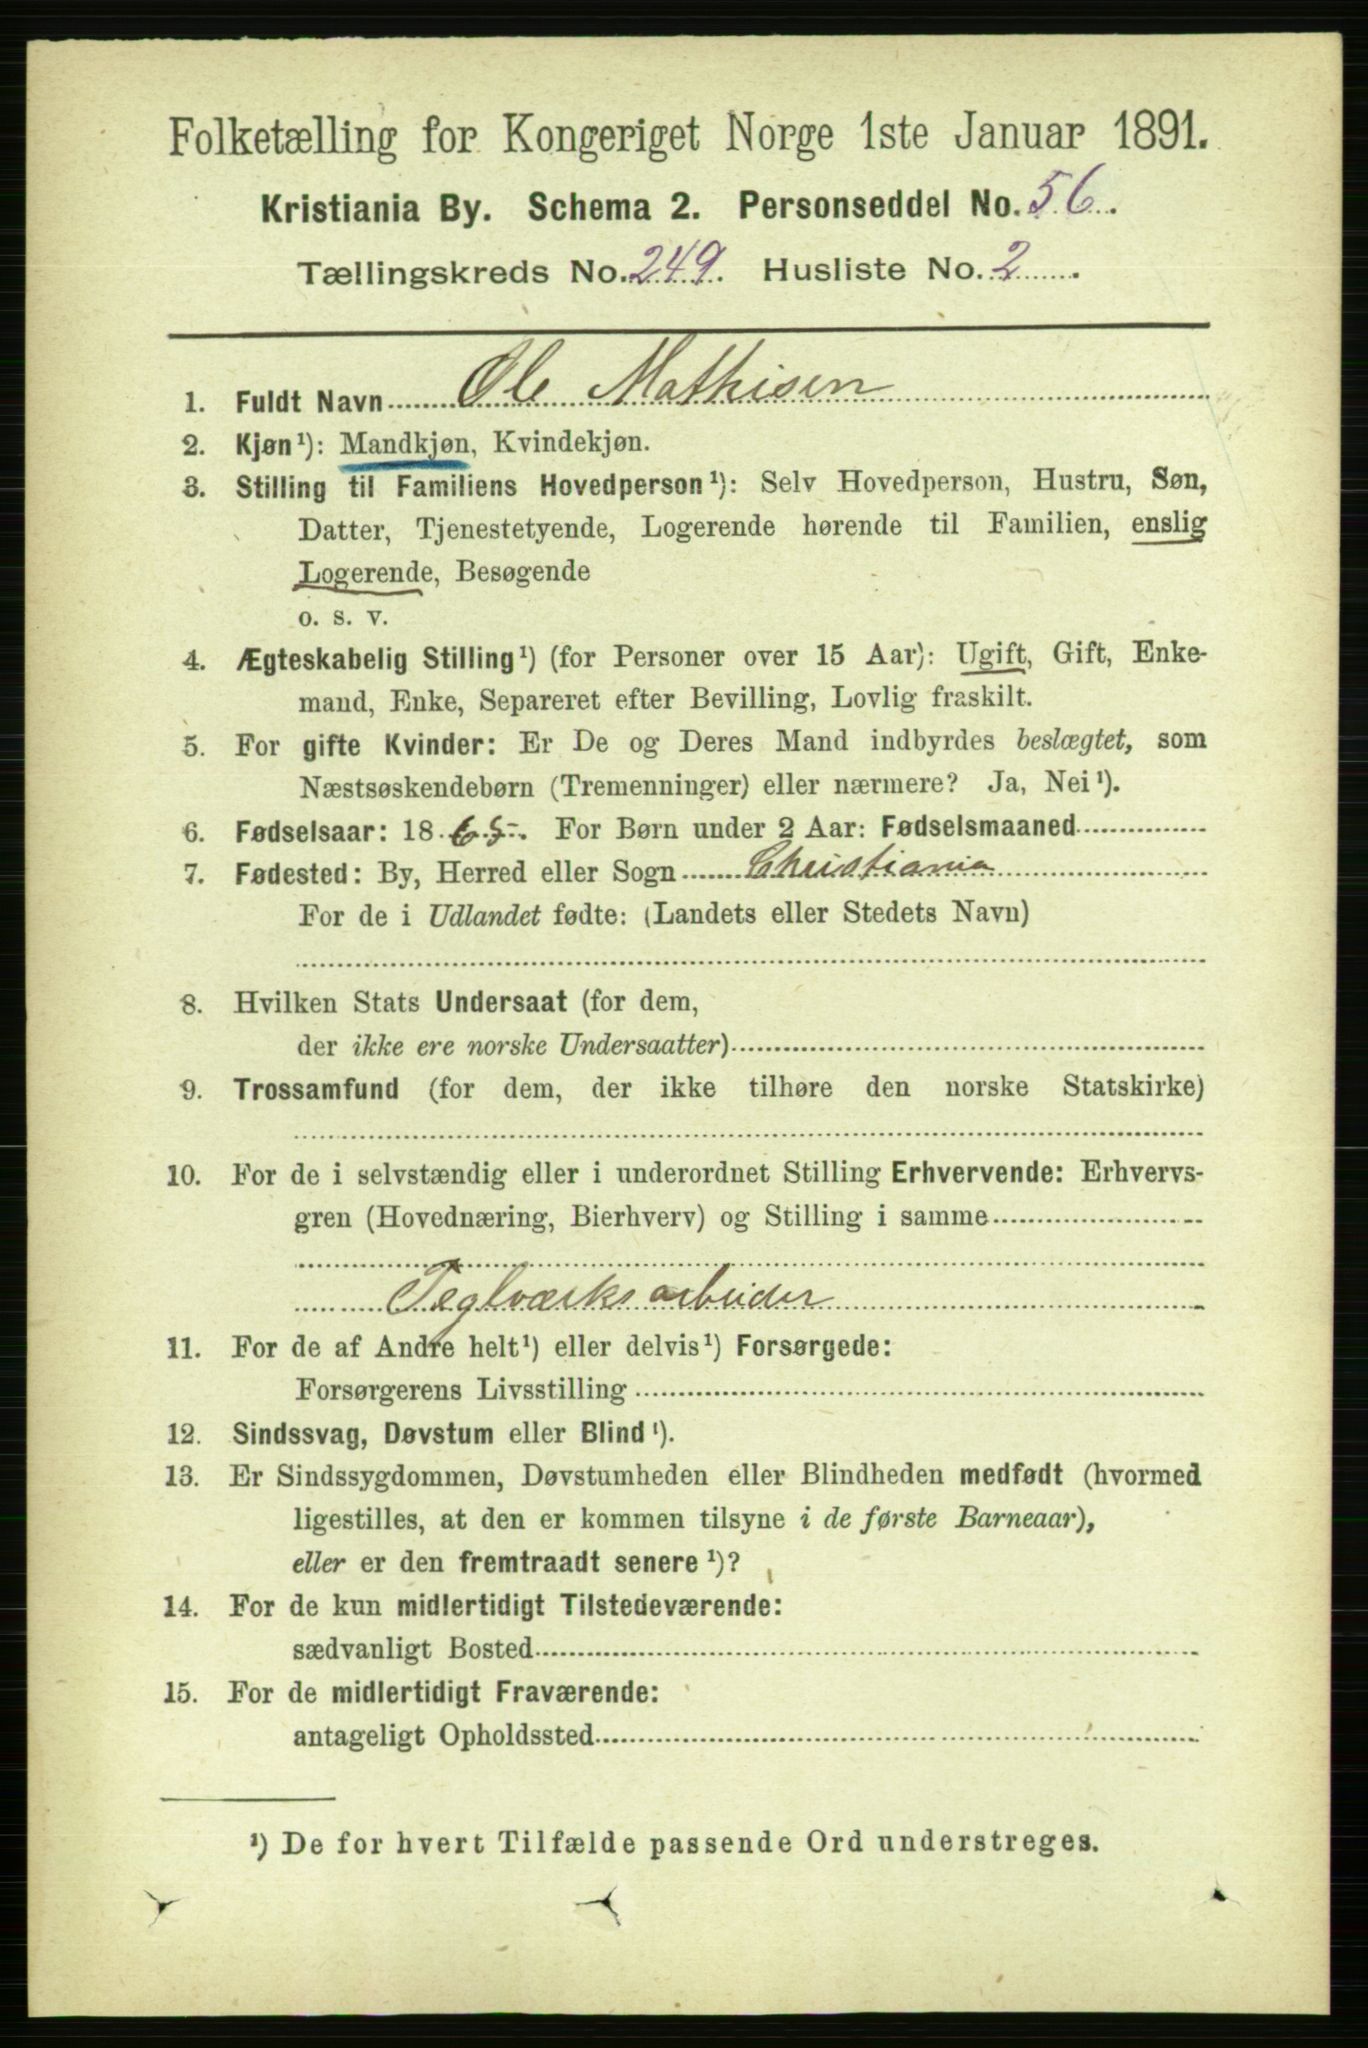 Folketælling for Kongeriget Norge 1ste Januar 1891.
Kristiania By. Schema 2. Personseddel No. 56.
Tællingskreds No. 249. Husliste No. 2.
1. Fuldt Navn Ole Mathisen
2. Kjøn¹): Mandkjøn, Kvindekjøn.
3. Stilling til Familiens Hovedperson¹): Selv Hovedperson, Hustru, Søn,
Datter, Tjenestetyende, Logerende hørende til Familien, enslig
Logerende, Besøgende
o. s. v.
4. Ægteskabelig Stilling¹) (for Personer over 15 Aar): Ugift, Gift, Enke-
mand, Enke, Separeret efter Bevilling, Lovlig fraskilt.
5. For gifte Kvinder: Er De og Deres Mand indbyrdes beslægtet, som
Næstsøskendebørn (Tremenninger) eller nærmere? Ja, Nei¹).
6. Fødselsaar: 1865. For Børn under 2 Aar: Fødselsmaaned
7. Fødested: By, Herred eller Sogn Christiania
For de i Udlandet fødte: (Landets eller Stedets Navn)
8. Hvilken Stats Undersaat (for dem,
der ikke ere norske Undersaatter)
9. Trossamfund (for dem, der ikke tilhøre den norske Statskirke)
10. For de i selvstændig eller i underordnet Stilling Erhvervende: Erhvervs-
gren (Hovednæring, Bierhverv) og Stilling i samme
Teglværksarbeider
11. For de af Andre helt¹) eller delvis¹) Forsørgede:
Forsørgerens Livsstilling
12. Sindssvag, Døvstum eller Blind¹).
13. Er Sindssygdommen, Døvstumheden eller Blindheden medfødt (hvormed
ligestilles, at den er kommen tilsyne i de første Barneaar),
eller er den fremtraadt senere¹)?
14. For de kun midlertidigt Tilstedeværende:
sædvanligt Bosted
15. For de midlertidigt Fraværende:
antageligt Opholdssted
¹) De for hvert Tilfælde passende Ord understreges.